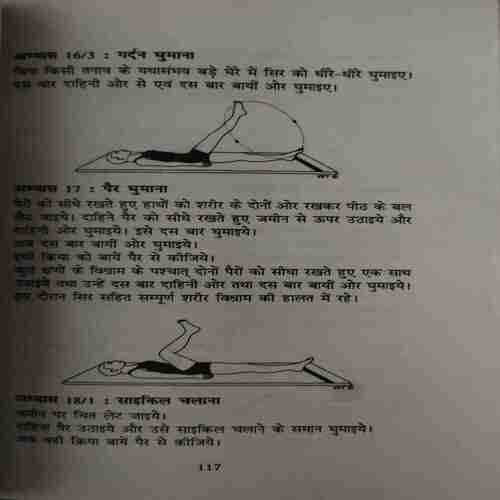 अभ्यास 16/3 : गर्दन घुमाना
बिना किसी तनाव के यथासंभव बड़े घेरे में सिर को धीरे-धीरे घुमाइए।
दस बार दाहिनी ओर से एवं दस बार बायीं ओर घुमाइए।
अभ्यास 17 : पैर घुमाना
पैरों को सीधे रखते हुए हाथों को शरीर के दोनों ओर रखकर पीठ के बल
लेट जाइये। दाहिने पैर को सीधे रखते हुए जमीन से ऊपर उठाइये और
दाहिनी ओर घुमाइये। इसे दस बार घुमाइये।
अब दस बार बायीं ओर घुमाइये।
इसी क्रिया को बायें पैर से कीजिये।
कुछ क्षणों के विश्राम के पश्चात् दोनों पैरों को सीधा रखते हुए एक साथ
उठाइये तथा उन्हें दस बार दाहिनी ओर तथा दस बार बायीं ओर घुमाइये।
इस दौरान सिर सहित सम्पूर्ण शरीर विश्राम की हालत में रहे।
अभ्यास 18/1 : साइकिल चलाना
जमीन पर चित लेट जाइये।
दाहिना पैर उठाइये और उसे साइकिल चलाने के समान घुमाइये।
अब यही क्रिया बायें पैर से कीजिये।
117